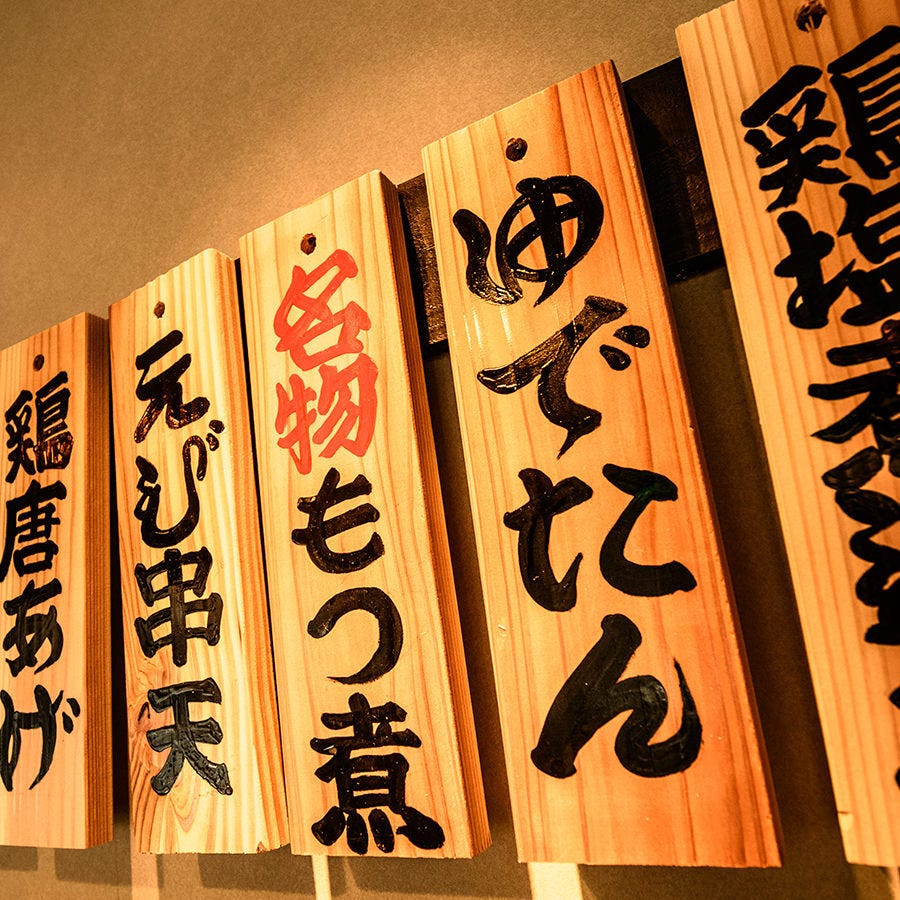 鶏唐あげ
えび串天
名物もつ煮
ゆでたん
鶏塩煮込